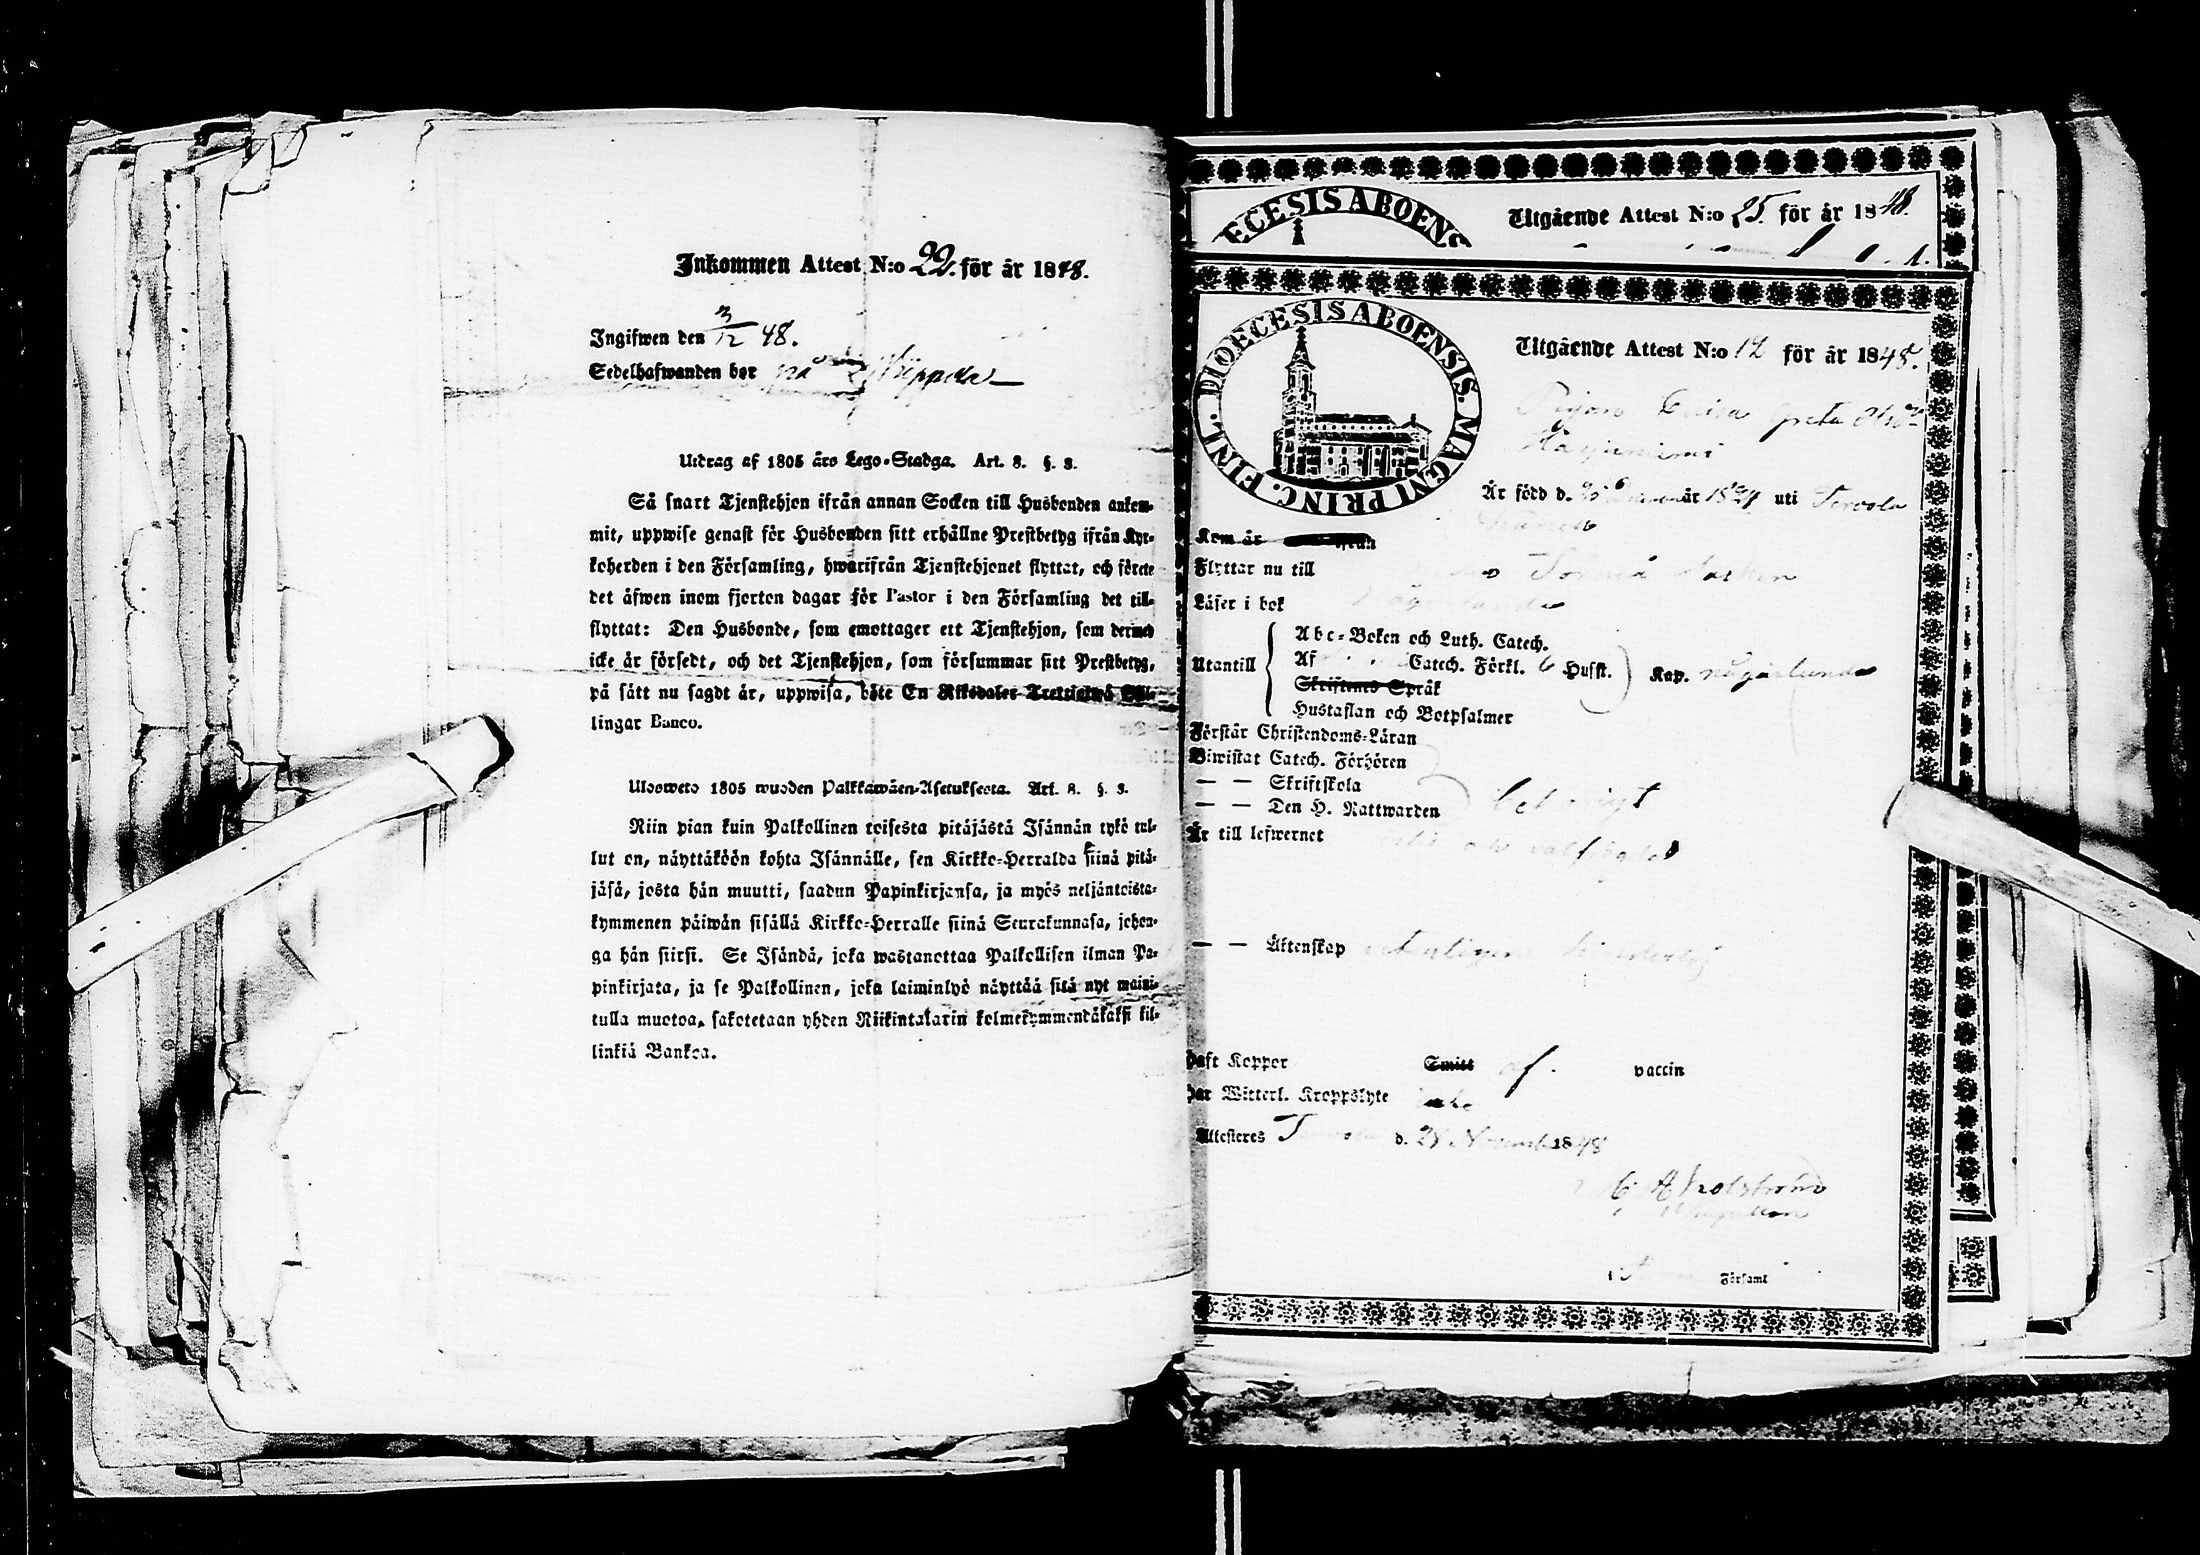 Inkommen Attest N:o 22. för år 1848.
Ingifwen den 3/12 48.
Sedelhafwanden bor på Kieppola
Utdrag af 1805 års Lego-Stadga. Art. 8. §. 8.
Så snart Tjenstehjon ifrån annan Socken till Husbonden ankom-
mit, uppwise genast för Husbonden sitt erhållne Prestbetyg ifrån Kyr-
koherden i den Församling, hwarifrån Tjenstehjonet flyttat, och förete
det äfwen inom fjorton dagar för Pastor i den Församling det till-
flyttat: Den Husbonde, som emottager ett Tjenstehjon, som dermed
icke är försedt, och det Tjenstehjon, som försummar sitt Prestbetyg,
på sätt nu sagdt är, uppwisa, böte En Riksdaler Trettiotwå Skil-
lingar Banco.
Ulosweto 1805 wuoden Palkkawäen-Asetuksesta. Art. 8. §. 8.
Niin pian kuin Palkollinen toisesta pitäjästä Isännän tykö tul-
lut on, näyttäköön kohta Isännälle, sen Kirkko-Herralda siinä pitä-
jäsä, josta hän muutti, saadun Papinkirjansa, ja myös neljäntoista-
kymmenen päiwän sisällä Kirkko-Herralle siinä Seurakunnasa, johon-
ga hän siirsi. Se Isändä, joka wastanottaa Palkollisen ilman Pa-
pinkirjata, ja se Palkollinen, joka laiminlyö näyttää sitä nyt maini-
tulla muotoa, sakotetaan yhden Riikintalarin kolmekymmendäkaksi kil-
linkiä Bankoa.
ECESIS ABOENS
Utgående Attest N:o 25. för år 1848.
DIOECESIS ABOENSIS. MAGNI PRINC. FINL.
Utgående Attest N:o 12 för år 1848.
Pigan Greta
Är född d. år 1824 uti Tervola
Kom år ifrån
Flyttar nu till Torneå Socken
Läser i bok någorlunda
Abc-Boken och Luth. Catech.
Utantill Af Catech. Förkl. 6 Husst. Kap. någorlunda
Skriftens Språk
Hustaflan och Botpsalmer
Förstår Christendoms-Läran
Biwistat Catech. Förhören
— — Skriftskola
— — Den H. Nattwarden behörigt
Är till lefwernet
— — Äktenskap
Haft Koppor Smitt af vaccin
Har Witterl. Kroppslyte
Attesteres Tervola d. November 1848
Församl